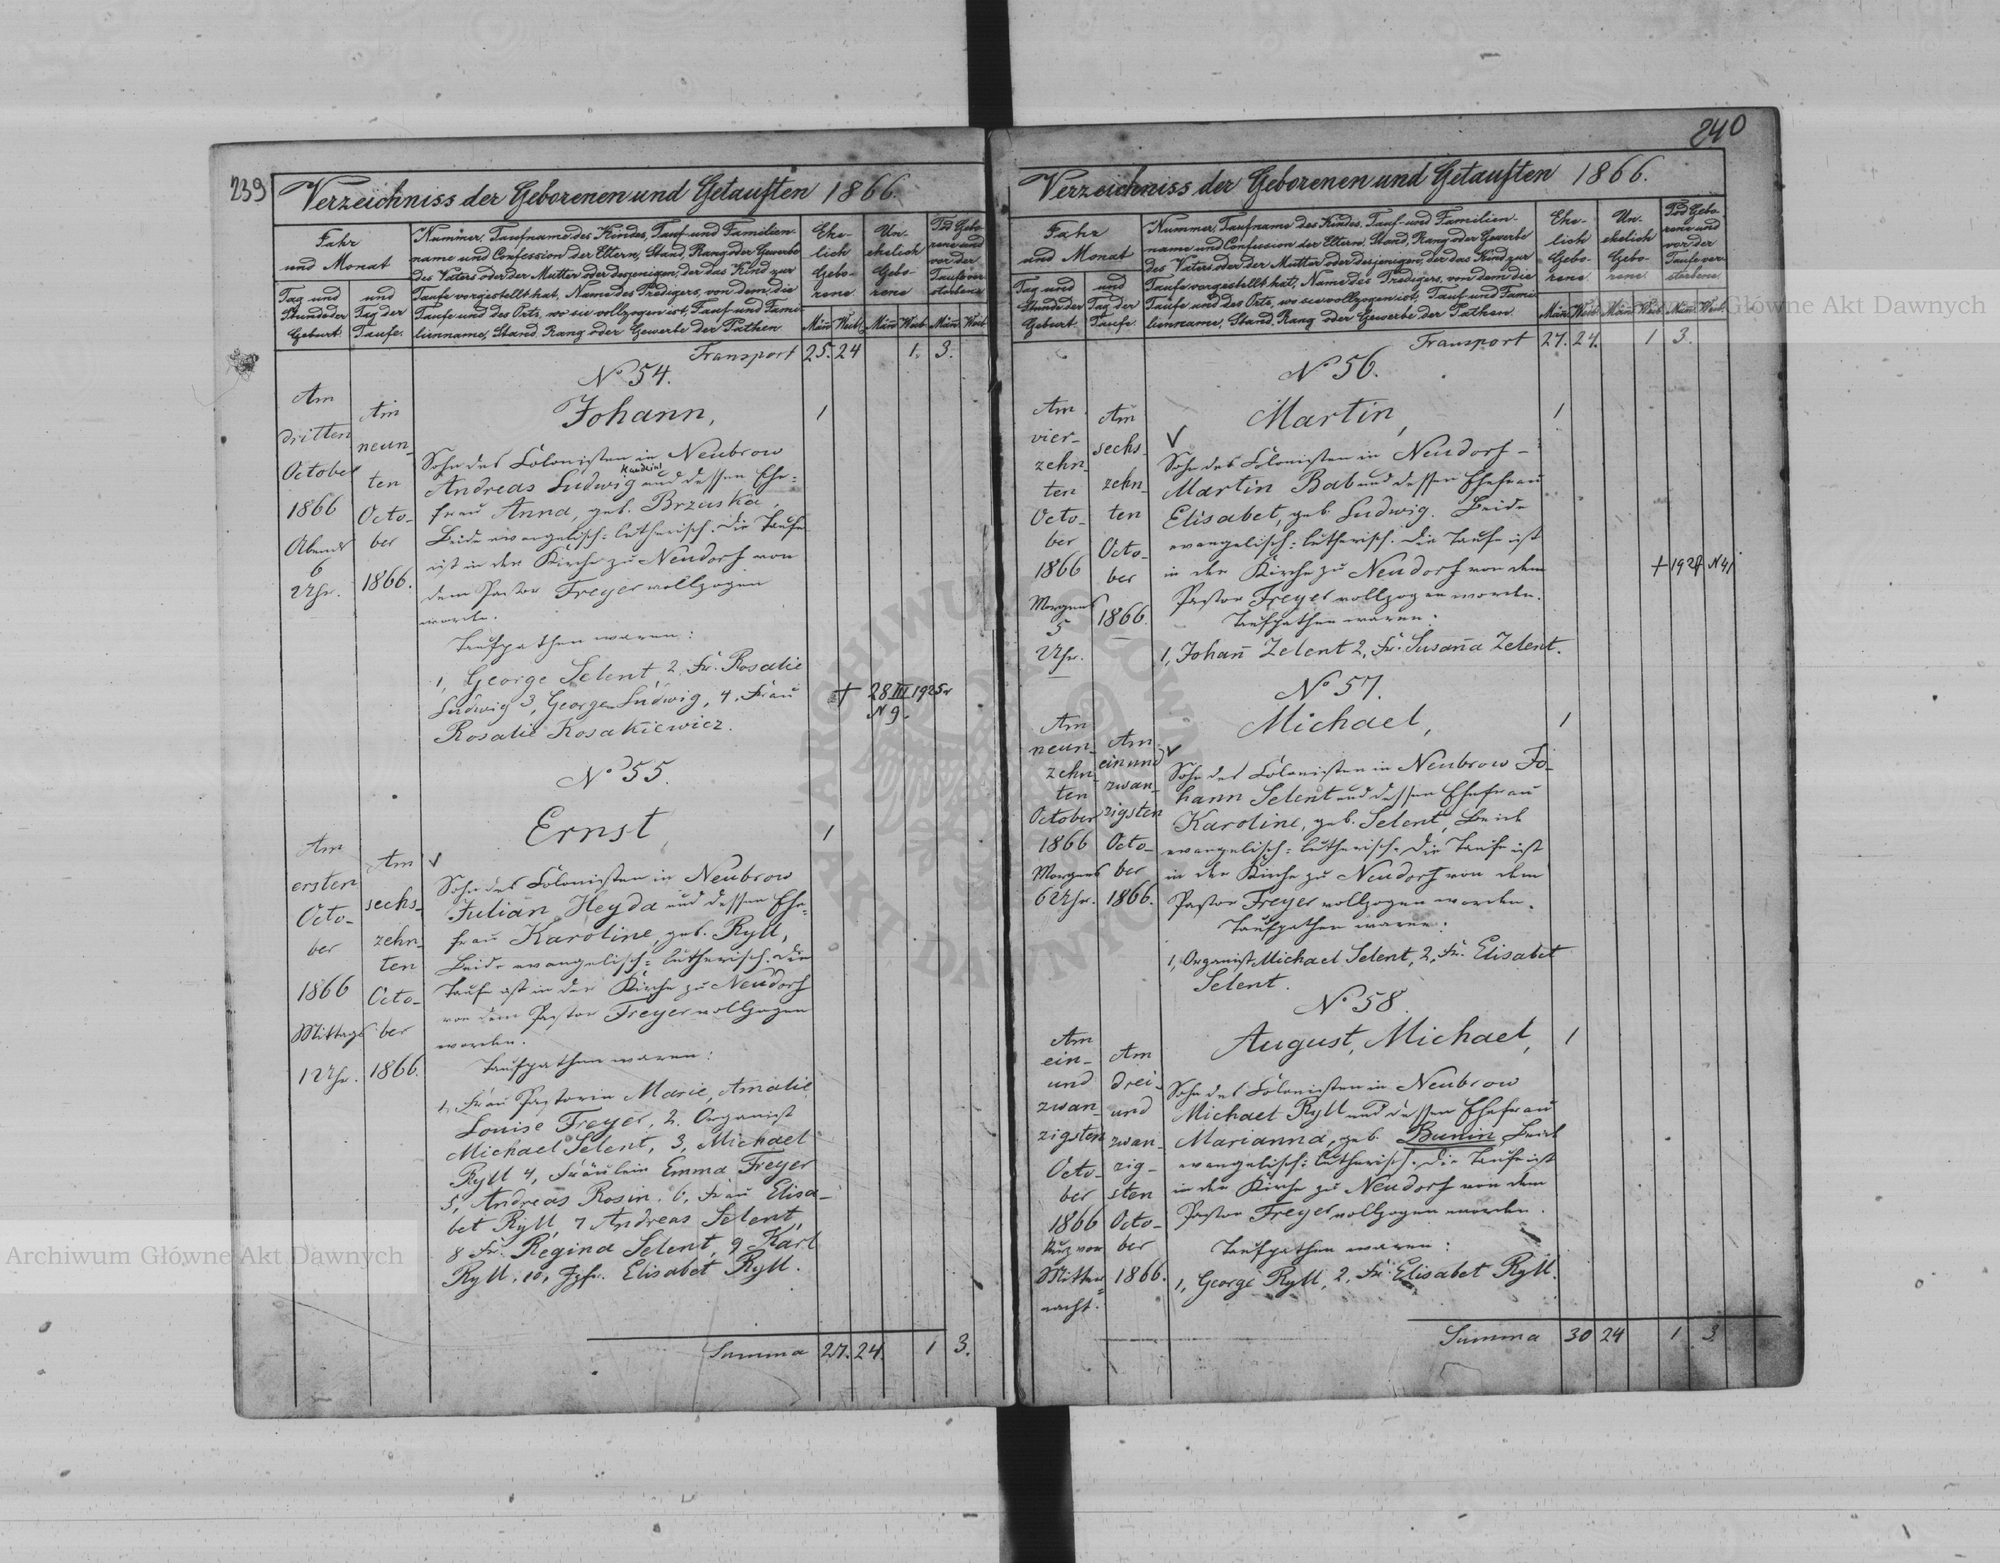 239
Verzeichniss der Geborenen und Getauften 1866.
Jahr
und Monat
Tag und
Stunde der
Geburt.
und
Tag der
Taufe.
Nummer, Taufname des Kindes, Tauf- und Familien-
name und Confession der Eltern, Stand, Rang oder Gewerbe
des Vaters oder der Mutter oder desjenigen, der das Kind zur
Taufe vorgestellt hat, Name des Predigers, von dem die
Taufe und des Orts, wo sie vollzogen ist, Tauf- und Fami-
lienname, Stand, Rang oder Gewerbe der Pathen
Ehe-
lich
Gebo-
rene
Un-
ehelich
Gebo-
rene
Tod Gebo-
rene und
vor der
Taufe ver-
storbene
Män. Weib. Män. Weib. Män. Weib.
Transport 25. 24 1. 3.
No 54.
Am
dritten
October
1866
Abends
6
Uhr.
Am
neun-
ten
Octo-
ber
1866.
Johann, 1
Sohn des Colonisten in Neubrow
Andreas Ludwig und dessen Ehe-
frau Anna, geb. Brzuska,
Beide evangelisch-lutherisch. Die Taufe
ist in der Kirche zu Neudorf von
dem Pastor Freyer vollzogen
worden.
Taufpathen waren:
1, George Selent, 2, Fr. Rosalie
Ludwig 3, George Ludwig, 4, Frau
Rosalie Kosakiewicz.
+ 28 III 1925 r
N 9.
No 55.
Am
ersten
Octo-
ber
1866
Mittags
12 Uhr.
Am
sechs-
zehn-
ten
Octo-
ber
1866.
Ernst 1
Sohn des Colonisten in Neubrow
Julian Heyda und dessen Ehe-
frau Karoline, geb. Ryll,
Beide evangelisch-lutherisch. Die
Taufe ist in der Kirche zu Neudorf
von dem Pastor Freyer vollzogen
worden.
Taufpathen waren:
1, Frau Pastorin Marie, Amalie
Louise Freyer, 2. Organist
Michael Selent, 3, Michael
Ryll 4, Fräulein Emma Freyer
5, Andreas Rosin, 6, Frau Elisa-
bet Ryll, 7 Andreas Selent,
8 Fr. Regina Selent, 9 Karl
Ryll, 10, Jgfr. Elisabet Ryll.
Summa 27. 24. 1 3.
240
Verzeichniss der Geborenen und Getauften 1866.
Jahr
und Monat
Tag und
Stunde der
Geburt.
und
Tag der
Taufe.
Nummer, Taufname des Kindes, Tauf- und Familien-
name und Confession der Eltern, Stand, Rang oder Gewerbe
des Vaters oder der Mutter oder desjenigen, der das Kind zur
Taufe vorgestellt hat, Name des Predigers, von dem die
Taufe und des Orts, wo sie vollzogen ist, Tauf- und Fami-
lienname, Stand, Rang oder Gewerbe der Pathen.
Ehe-
lich
Gebo-
rene
Un-
ehelich
Gebo-
rene
Tod Gebo-
rene und
vor der
Taufe ver-
storbene
Män. Weib. Män. Weib. Män. Weib.
Transport 27. 24. 1 3.
No 56.
Am
vier-
zehn-
ten
Octo-
ber
1866
Morgens
5
Uhr.
Am
sechs-
zehn-
ten
Octo-
ber
1866.
Martin, 1
Sohn des Colonisten in Neudorf
Martin Bab und dessen Ehefrau
Elisabet, geb. Ludwig. Beide
evangelisch-lutherisch. Die Taufe ist
in der Kirche zu Neudorf von dem
Pastor Freyer vollzogen worden.
Taufpathen waren:
1, Johan̄ Zelent 2, Fr. Susan̄a Zelent.
No 57.
Am
neun-
zehn-
ten
October
1866
Morgens
6 Uhr.
Am
ein und
zwan-
zigsten
Octo-
ber
1866.
Michael, 1
Sohn des Colonisten in Neubrow Jo-
hann Selent und dessen Ehefrau
Karoline, geb. Selent, Beide
evangelisch-lutherisch. Die Taufe ist
in der Kirche zu Neudorf von dem
Pastor Freyer vollzogen worden.
Taufpathen waren:
1, Organist Michael Selent, 2, Fr. Elisabet
Selent.
No 58.
Am
ein-
und
zwan-
zigsten
Octo-
ber
1866
Kurz vor
Mitter-
nacht.
Am
drei-
und
zwan-
zig-
sten
Octo-
ber
1866.
August, Michael, 1
Sohn des Colonisten in Neubrow
Michael Ryll und dessen Ehefrau
Marianna, geb. Bunin, Beide
evangelisch-lutherisch. Die Taufe ist
in der Kirche zu Neudorf von dem
Pastor Freyer vollzogen worden.
Taufpathen waren:
1, George Ryll, 2, Fr. Elisabet Ryll.
Summa 30 24 1 3
Archiwum Główne Akt Dawnych
Archiwum Główne Akt Dawnych
ARCHIWUM GŁÓWNE AKT DAWNYCH